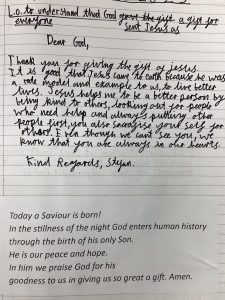 L.o. to understand that God gave the gift a gift for
everyone sent Jesus as
Dear God,
Thank you for giving the gift of jesus.
It is good that Jesus came to earth because he was
a role model and example to us, to live better
lives. Jesus helps me to be a better person by
being kind to others, looking out for people
who need help and always putting other
people first, you also sacrasise your self for
others. Even though we can't see you, we
know that you are always in our hearts.
Kind Regards, Stefan.
Today a Saviour is born!
In the stillness of the night God enters human history
through the birth of his only Son.
He is our peace and hope.
In him we praise God for his
goodness to us in giving us so great a gift. Amen.